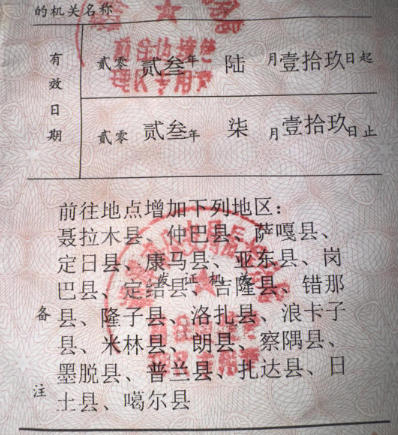 的机关名称
有效日期
贰零贰叁年 陆 月壹拾玖日起
贰零贰叁年 柒 月壹拾玖日止
前往地点增加下列地区：
聂拉木县、仲巴县、萨嘎县、
定日县、康马县、亚东县、岗
巴县、定结县、吉隆县、错那
县、隆子县、洛扎县、浪卡子
县、米林县、朗县、察隅县、
墨脱县、普兰县、扎达县、日
土县、噶尔县
备注
发证机关